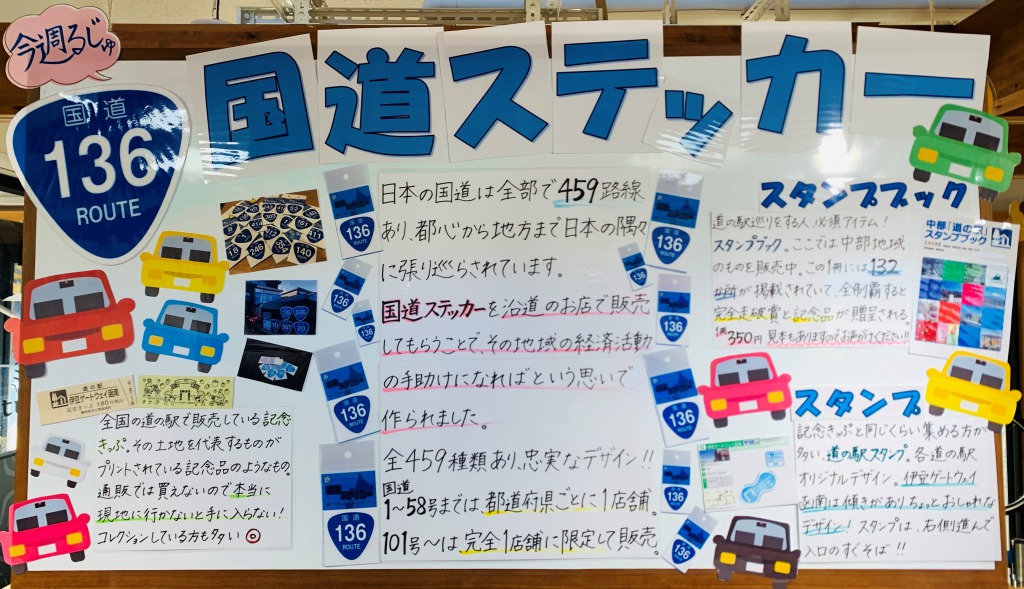 今週るじゅ
国道ステッカー
国道
136
ROUTE
日本の国道は全部で459路線
あり、都心から地方まで日本の隅々
に張り巡らされています。
国道ステッカーを沿道のお店で販売
してもらうことで、その地域の経済活動
の手助けになればという思いで
作られました。
全459種類あり、忠実なデザイン!!
国道
1~58号までは、都道府県ごとに1店舗。
101号~は、完全1店舗に限定して販売。
スタンプブック
道の駅巡りをする人、必須アイテム!
スタンプブック。ここでは中部地域
のものを販売中。この1冊には132
か所が掲載されていて、全制覇すると
完全走破賞と記念品が贈呈される
1冊350円 見本もありますのでお声がけください!!
中部「道の駅」
スタンプブック
道の駅
伊豆ゲートウェイ函南
全国の道の駅で販売している記念
きっぷ。その土地を代表するものが
プリントされている記念品のようなもの。
通販では買えないので本当に
現地に行かないと手に入らない!
コレクションしている方も多い◎
スタンプ
記念きっぷと同じくらい集める方が
多い、道の駅スタンプ。各道の駅
オリジナルデザイン。伊豆ゲートウェイ
函南は傾きがあり、ちょっとおしゃれな
デザイン! スタンプは、右側進んで
入口のすぐそば!!
136
ROUTE
136
ROUTE
136
136
136
136
136
ROUTE
136
136
ROUTE
136
136
ROUTE
136